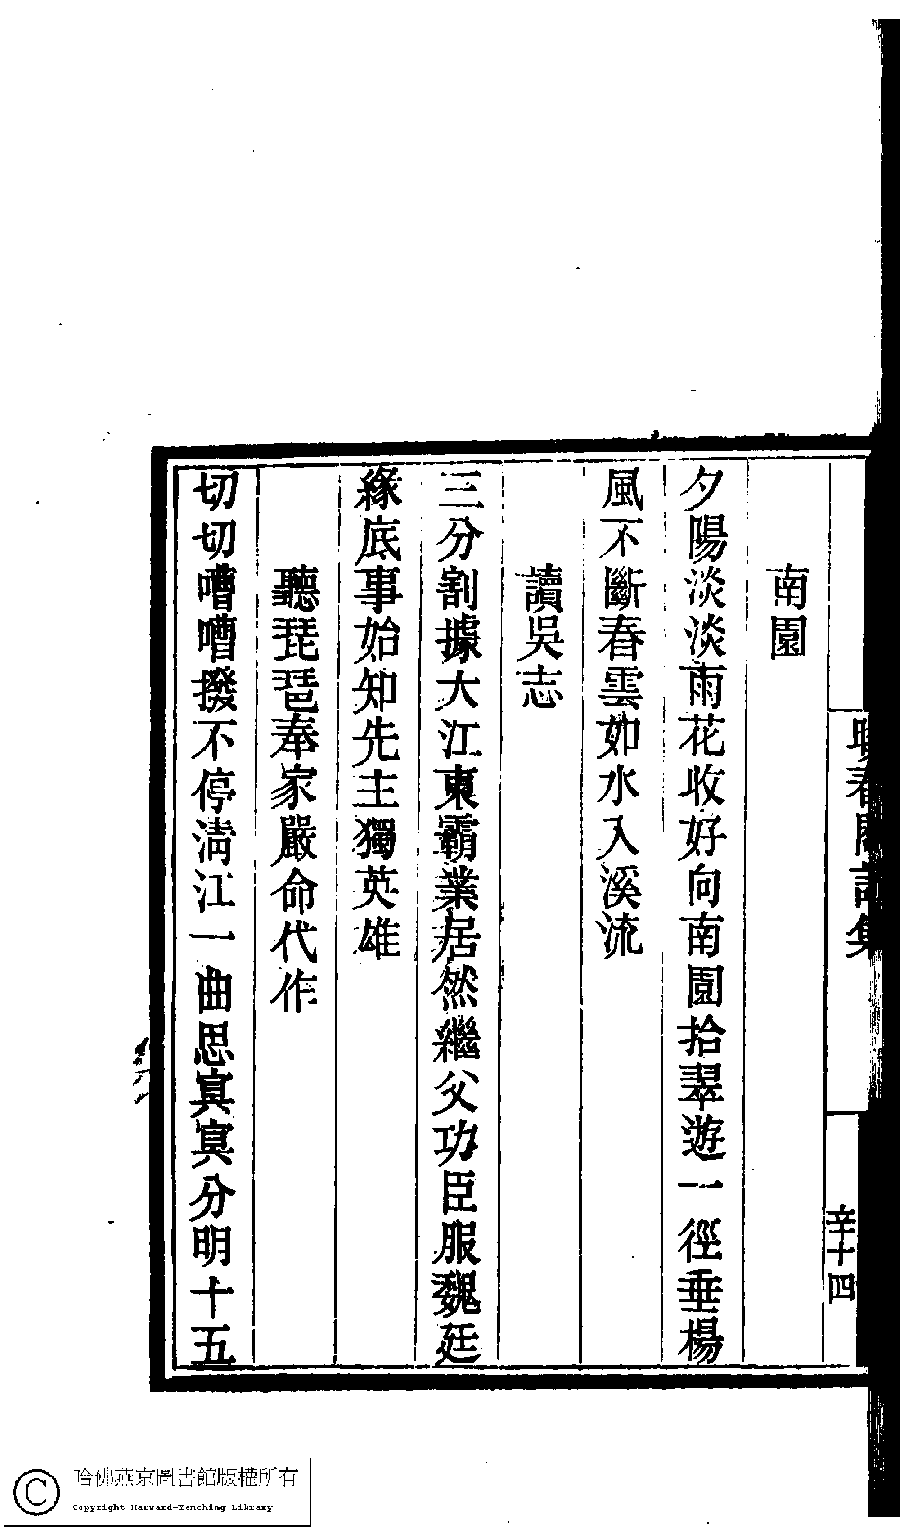 南園
夕陽淡淡雨花收好向南園拾翠遊一徑垂楊
風不斷春雲如水入溪流
讀吳志
三分割據大江東霸業居然繼父功臣服魏廷
緣底事始知先主獨英雄
聽琵琶奉家嚴命代作
切切嘈嘈撥不停淸江一曲思㝠㝠分明十五
春閣詩集
辛十四
哈佛燕京圖書館版權所有
Copyright Harvard-Yenching Library